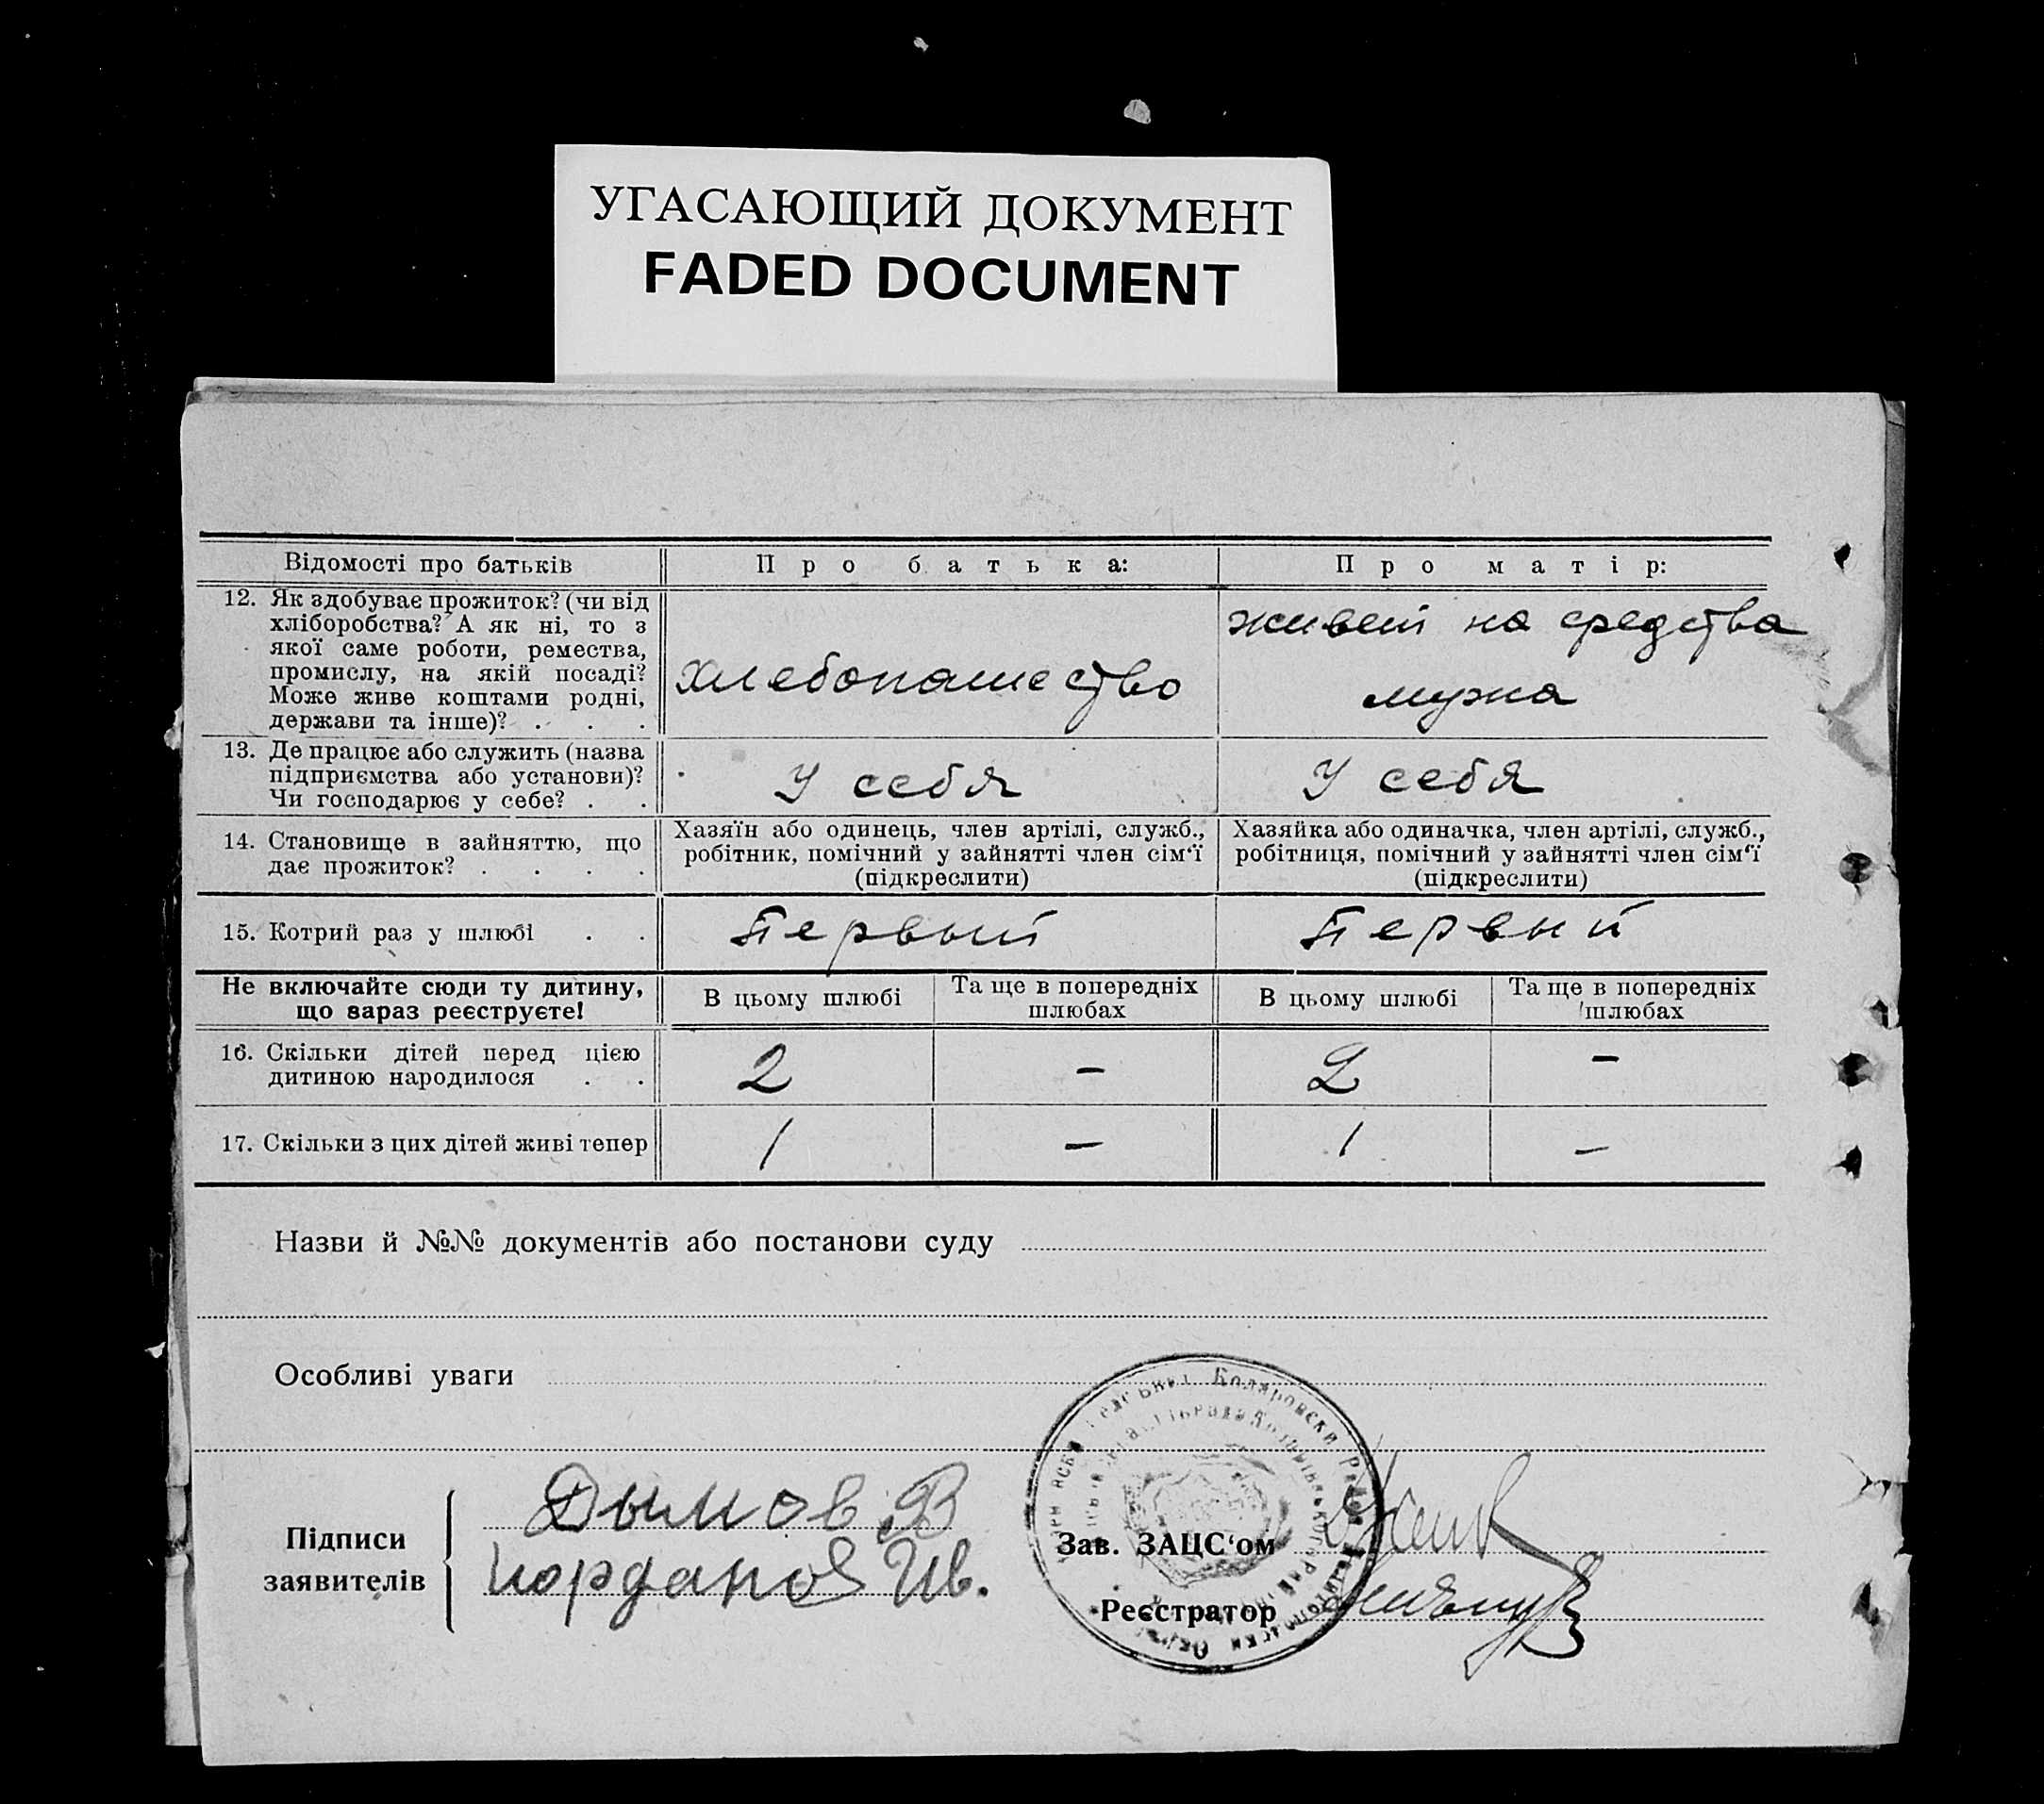 УГАСАЮЩИЙ ДОКУМЕНТ
FADED DOCUMENT
Відомості про батьків
Про батька:
Про матір:
12. Як здобуває прожиток? (чи від
хліборобства? А як ні, то з
якої саме роботи, ремества,
промислу, на якій посаді?
Може живе коштами родні,
держави та інше)? . . .
хлебопашество
живет на средства
мужа
13. Де працює або служить (назва
підприємства або установи)?
Чи господарює у себе? . .
У себя
У себя
14. Становище в зайняттю, що
дає прожиток? . . . .
Хазяїн або одинець, член артілі, служб.,
робітник, помічний у зайнятті член сім‘ї
(підкреслити)
Хазяйка або одиначка, член артілі, служб.,
робітниця, помічний у зайнятті член сім‘ї
(підкреслити)
15. Котрий раз у шлюбі . .
Первый
Первый
Не включайте сюди ту дитину,
що зараз реєструєте!
В цьому шлюбі
Та ще в попередніх
шлюбах
В цьому шлюбі
Та ще в попередніх
шлюбах
16. Скільки дітей перед цією
дитиною народилося . .
2
–
2
–
17. Скільки з цих дітей живі тепер
1
–
1
–
Назви й №№ документів або постанови суду
Особливі уваги
Підписи
заявителів
Дымов В
Иорданов Ив.
Коляровски
Зав. ЗАЦС‘ом
Реєстратор